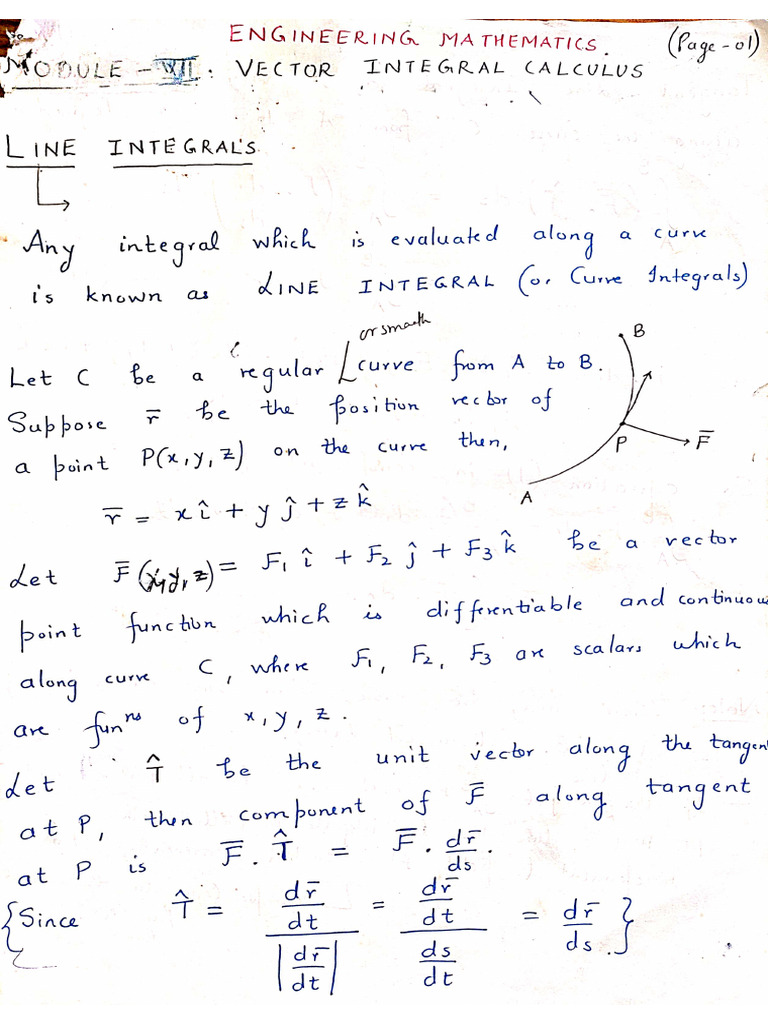 ENGINEERING MATHEMATICS. (Page-01)
MODULE - VII : VECTOR INTEGRAL CALCULUS
LINE INTEGRAL'S
Any integral which is evaluated along a curve
is known as LINE INTEGRAL (or Curve Integrals)
or smooth
Let C be a regular curve from A to B.
Suppose r̄ be the position vector of
a point P(x,y,z) on the curve then,
B
P
F̄
A
r̄ = xî + yĵ + zk̂
Let F̄(x,y,z) = F₁î + F₂ĵ + F₃k̂ be a vector
point function which is differentiable and continuou
along curve C, where F₁, F₂, F₃ are scalars which
are funⁿˢ of x, y, z.
Let T̂ be the unit vector along the tangen
at P, then component of F̄ along tangent
at P is F̄. T̂ = F̄. dr̄/ds.
{Since T̂ = (dr̄/dt)/|dr̄/dt| = (dr̄/dt)/(ds/dt) = dr̄/ds.}